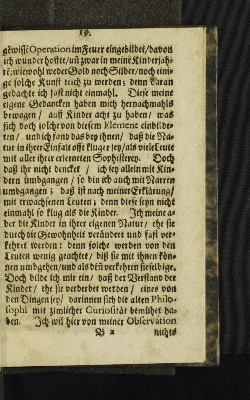 19.
gewisse Operation im Feuer eingebildet/davon
ich wunder hoffte/uñ zwar in meine Kinderjah-
rē; wiewohl weder Gold noch Silber/noch eini-
ge solche Kunst reich zu werden; denn daran
gedachte ich fast nicht einmahl. Diese meine
eigene Gedancken haben mich hernachmahls
bewogen/ auff Kinder acht zu haben/ was
sich doch solche von diesem Element einbilde-
ten/ und ich fand das bey ihnen/ daß die Na-
tur in ihrer Einfalt offt kluger sey/als viele Leute
mit aller ihrer erlerneten Sophisterey. Doch
daß ihr nicht dencket / ich sey allein mit Kin-
dern umbgangen / so bin ich auch mit Narren
umbgangen ; daß ist nach meiner Erklärung/
mit erwachsenen Leuten; denn diese seyn nicht
einmahl so klug als die Kinder. Ich meine a-
ber die Kinder in ihrer eigenen Natur/ ehe sie
durch die Gewohnheit verändert und fast ver-
kehret werden: denn solche werden von den
Leuten wenig geachtet/ biß sie mit ihnen kön-
nen umbgehen/und als deñ verkehren sie selbige.
Doch bilde ich mir ein/ daß der Verstand der
Kinder/ ehe sie verderbet werden/ eines von
den Dingen sey/ darinnen sich die alten Philo-
sophi mit zimlicher Curiosität bemühet ha-
ben. Ich wil hier von meiner Observation
B 2 nichts